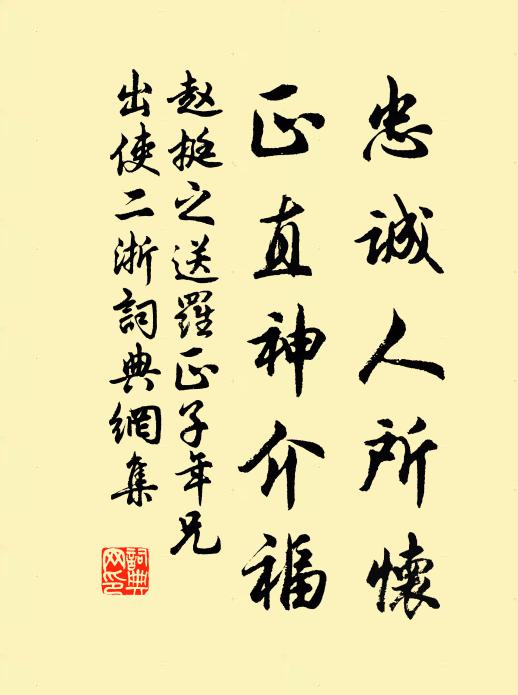 忠誠人所懷
正直神介福
趙挺之送羅正子年兄
出使二浙詞典網集
詞典网印